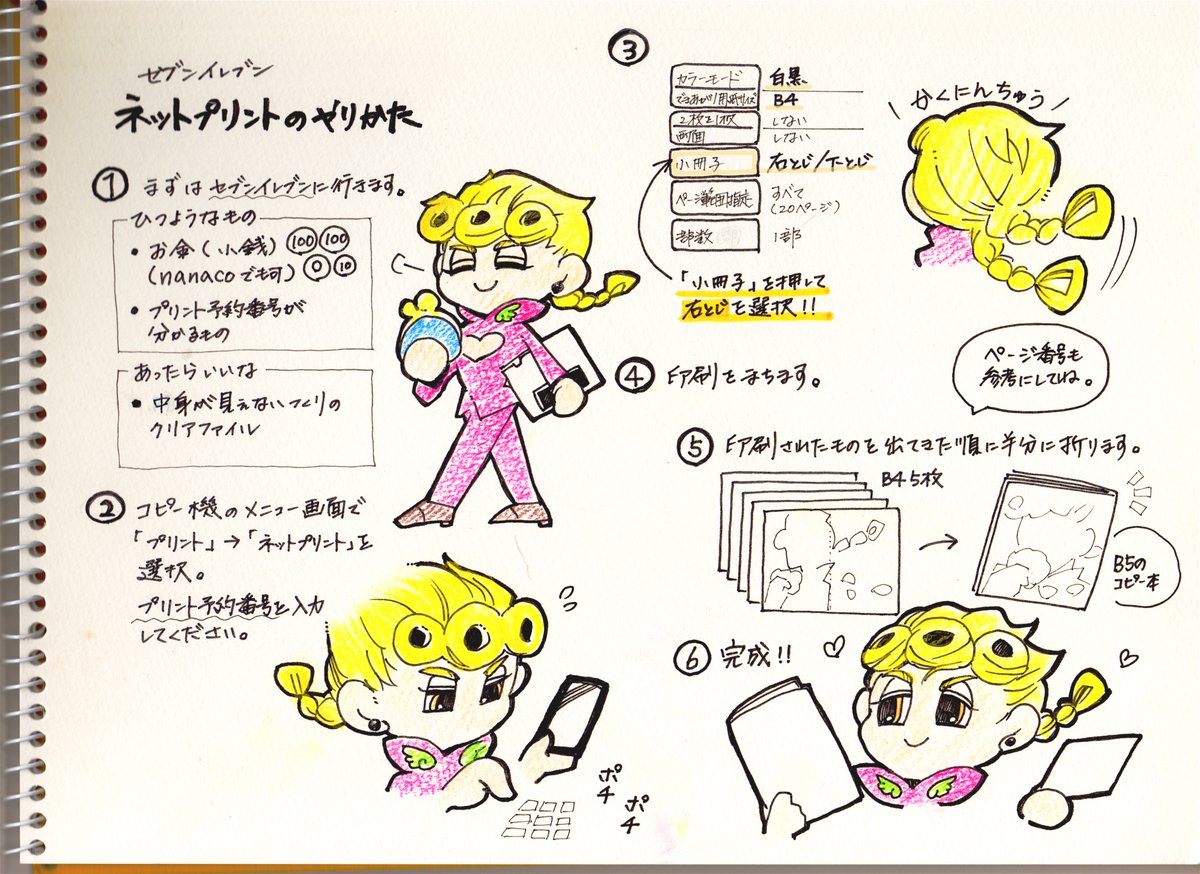 セブンイレブン
ネットプリントのやりかた
① まずはセブンイレブンに行きます。
ひつようなもの
• お金(小銭) 100 100
(nanacoでも可) 0 10
• プリント予約番号が
分かるもの
あったらいいな
• 中身が見えないつくりの
クリアファイル
② コピー機のメニュー画面で
「プリント」→「ネットプリント」を
選択。
プリント予約番号を入力
してください。
ポチ
ポチ
③
カラーモード 白黒
できあがり用紙サイズ B4
2枚を1枚 しない
両面 しない
小冊子 右とじ/下とじ
ページ範囲指定 すべて
(20ページ)
部数 1部
「小冊子」を押して
右とじを選択!!
かくにんちゅう
④ 印刷をまちます。
ページ番号も
参考にしてね。
⑤ 印刷されたものを出てきた順に半分に折ります。
B4 5枚
B5の
コピー本
⑥ 完成!!